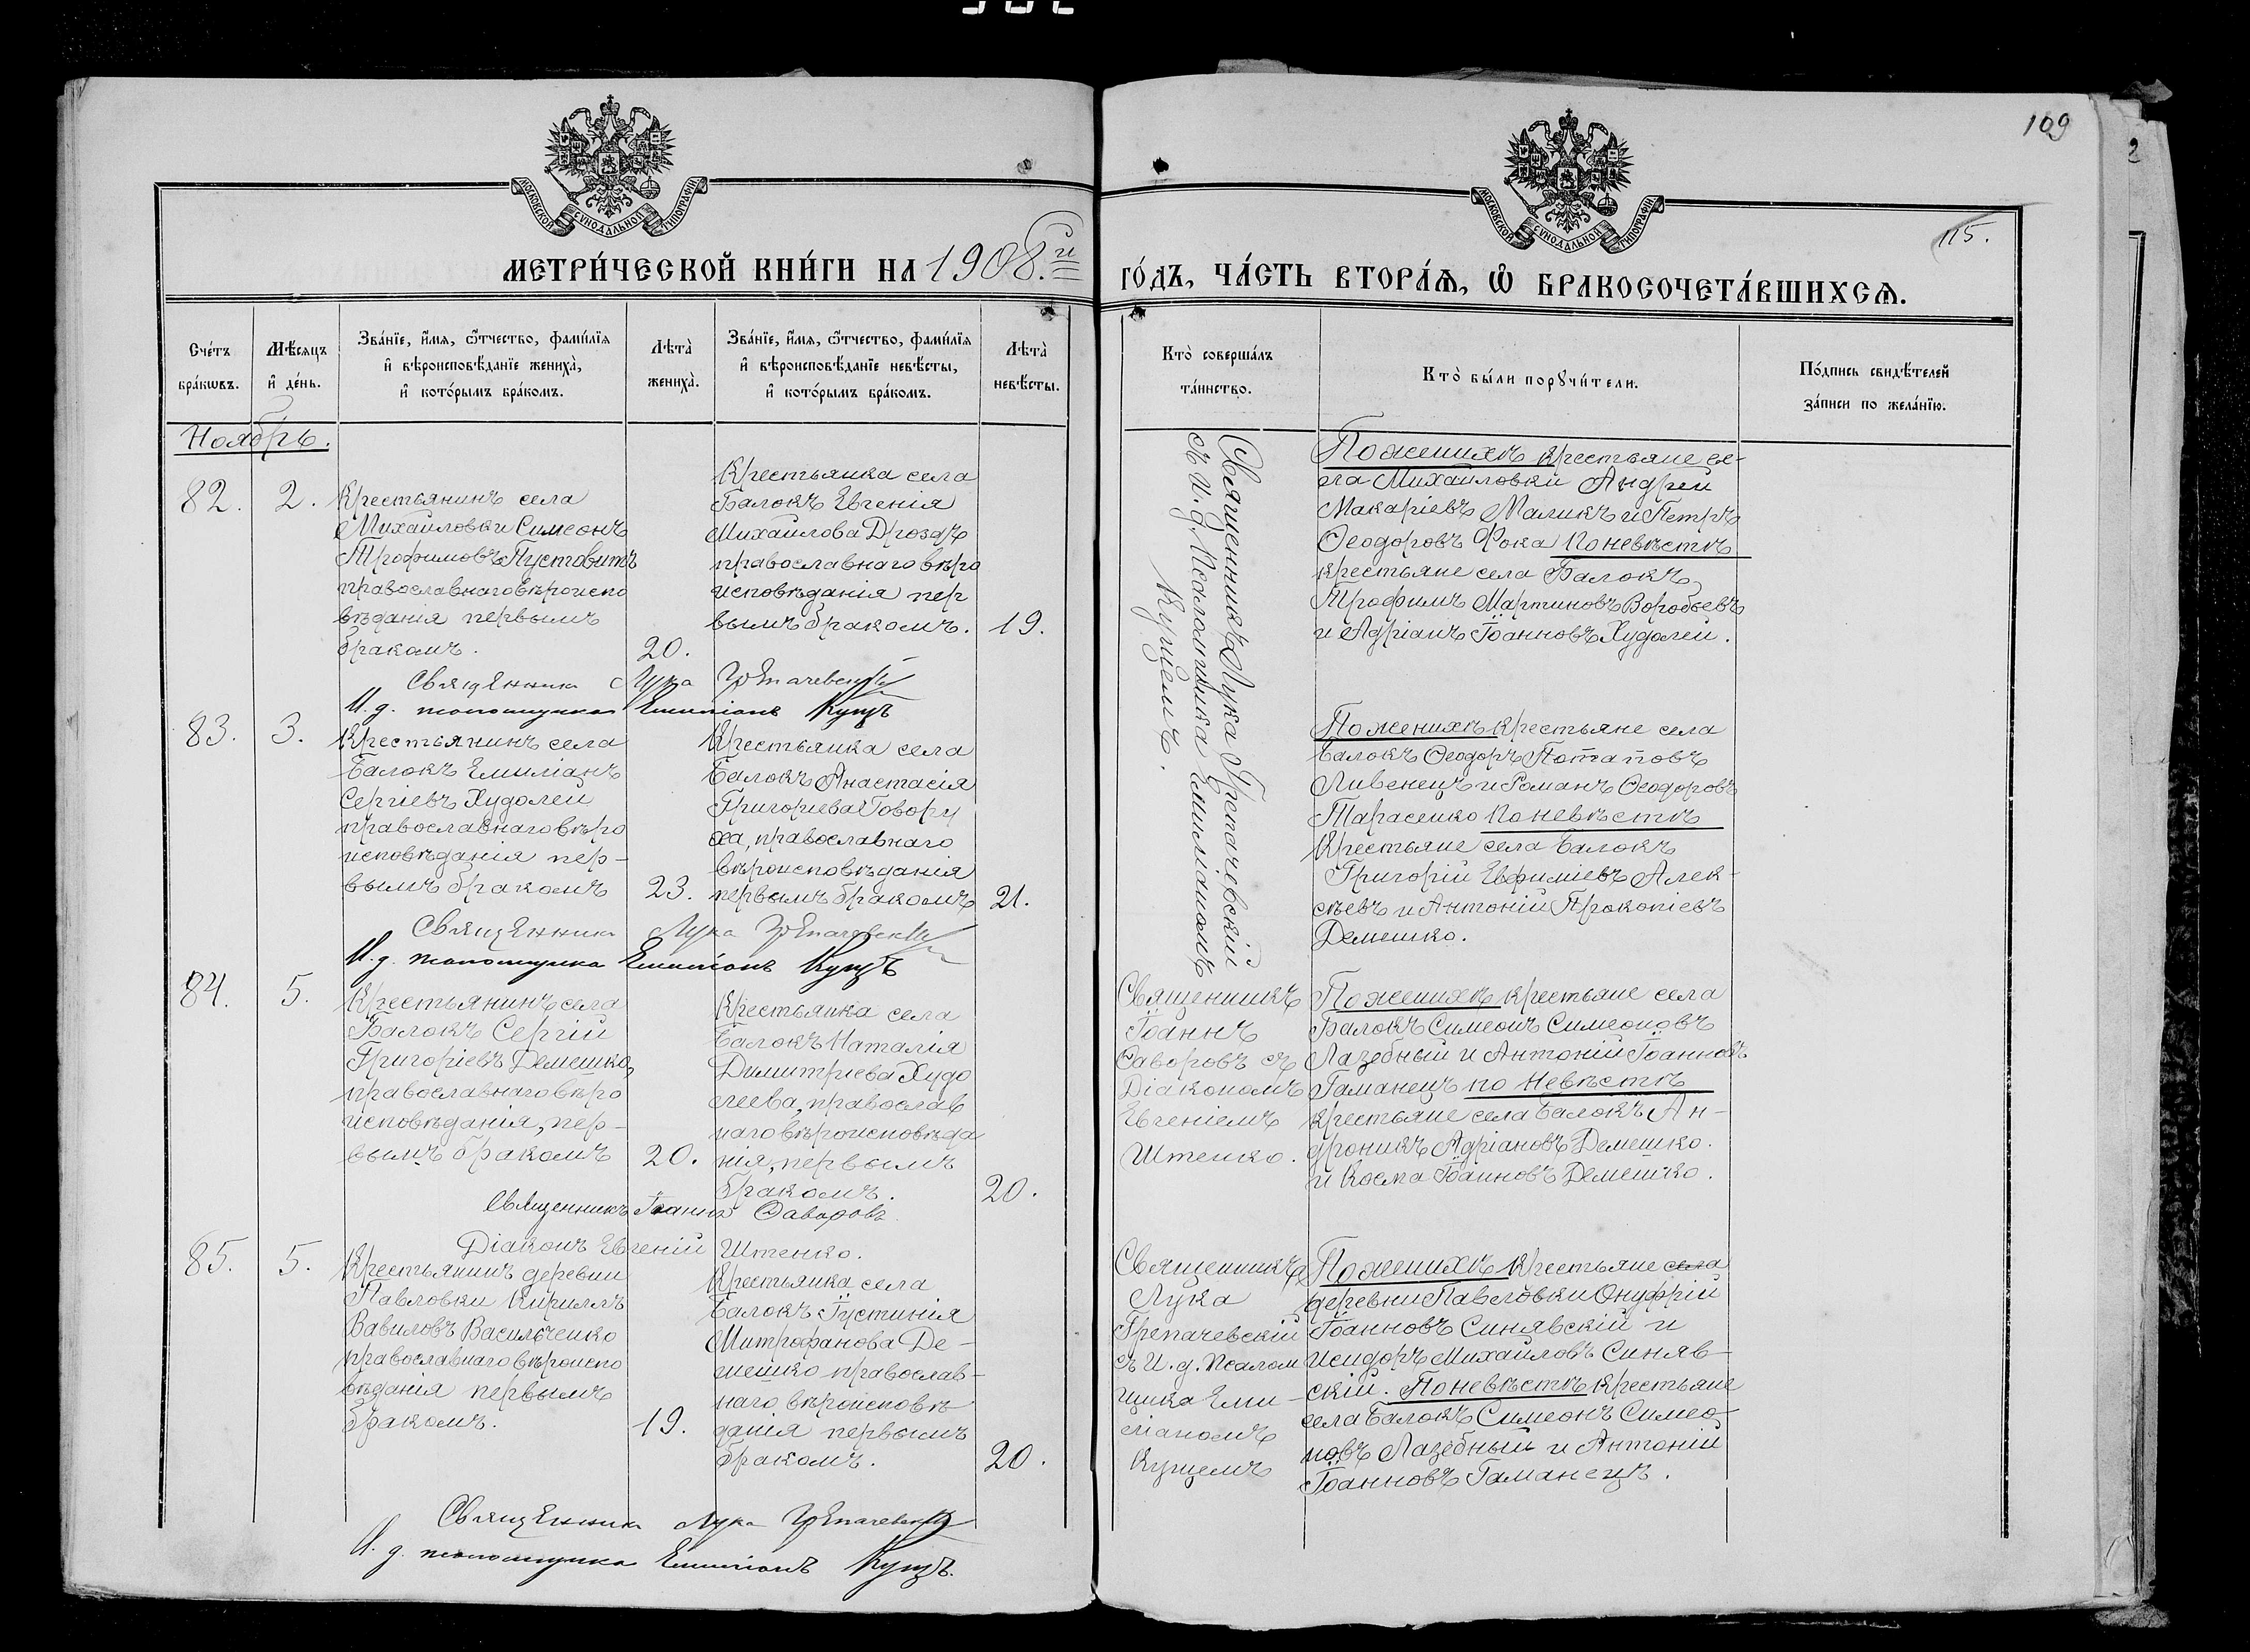 109
115.
МОСКОВСКОЙ СѴНОДАЛЬНОЙ ТИПОГРАФІИ
МОСКОВСКОЙ СѴНОДАЛЬНОЙ ТИПОГРАФІИ
МЕТРИ́ЧЕСКОЙ КНИ́ГИ НА 1908.й
ГО́ДЪ, ЧА́СТЬ ВТОРА́Ѧ, Ѽ БРАКОСОЧЕТА́ВШИХСѦ.
Сче́тъ
бра́кѡвъ.
Мѣ́сяцъ
и҆ де́нь.
Зва́нїе, и҆́мя, ѻ҆́тчество, фами́лїя
и҆ вѣроисповѣ́данїе жениха̀,
и҆ кото́рымъ бра́комъ.
Лѣта̀
жениха̀.
Зва́нїе, и҆́мя, ѻ҆́тчество, фами́лїя
и҆ вѣроисповѣ́данїе невѣ́сты,
и҆ кото́рымъ бра́комъ.
Лѣта̀
невѣ́сты.
Кто̀ соверша́лъ
та́инство.
Кто̀ бы́ли порꙋчи́тели.
По́дпись свидѣ́телей
за́писи по жела́нїю.
Ноябрь.
82.
2.
Крестьянинъ села
Михайловки Симеонъ
Трофимовъ Пустовитъ
православнаго вѣроиспо
вѣданія первымъ
бракомъ.
20.
Крестьянка села
Балокъ Евгенія
Михайлова Дроздъ
православнаго вѣро
исповѣданія пер
вымъ бракомъ.
19.
Священникъ Лука Грепачевскій
съ И. д. Псаломщика Емиліаномъ
Купцемъ.
По женихѣ крестьяне се-
ла Михайловки Андрей
Макаріевъ Маликъ и Петръ
Ѳеодоровъ Фока По невѣстѣ
крестьяне села Балокъ
Трофимъ Мартиновъ Воробьевъ
и Адріанъ Іоанновъ Худолей.
Священникъ Лука Грепачевскій
И. д. псаломщика Емиліанъ Купцъ
83.
3.
Крестьянинъ села
Балокъ Емиліанъ
Сергіевъ Худолей
православнаго вѣро
исповѣданія пер-
вымъ бракомъ
23.
Крестьянка села
Балокъ Анастасія
Григоріева Говору
ха, православнаго
вѣроисповѣданія
первымъ бракомъ
21.
По женихѣ крестьяне села
Балокъ Ѳеодоръ Потаповъ
Ливенецъ и Романъ Ѳеодоровъ
Тарасенко По невѣстѣ
Крестьяне села Балокъ
Григорій Евфиміевъ Алек-
сѣевъ и Антоній Прокопіевъ
Демешко.
Священникъ Лука Грепачевскій
И. д. псаломщика Емиліанъ Купцъ
84.
5.
Крестьянинъ села
Балокъ Сергій
Григоріевъ Демешко,
православнаго вѣро
исповѣданія, пер-
вымъ бракомъ
20.
Крестьянка села
Балокъ Наталія
Димитріева Худо
леева, православ
наго вѣроисповѣда
нія, первымъ
бракомъ.
20.
Священникъ
Іоаннъ
Ѳаворовъ съ
Діакономъ
Евгеніемъ
Штенко.
По женихѣ крестьяне села
Балокъ Симеонъ Симеоновъ
Лазебный и Антоній Іоанновъ
Гаманецъ по невѣстѣ
крестьяне села Балокъ Ан-
дроникъ Адріановъ Демешко.
и Косма Іоанновъ Демешко.
Священникъ Іоаннъ Ѳаворовъ.
Діаконъ Евгеній Штенко.
85.
5.
Крестьянинъ деревни
Павловки Кириллъ
Вавиловъ Васильченко
православнаго вѣроиспо
вѣданія первымъ
бракомъ.
19.
Крестьянка села
Балокъ Іустинія
Митрофанова Де-
мешко православ-
наго вѣроисповѣ
данія первымъ
бракомъ.
20.
Священникъ
Лука
Грепачевскій
съ И. д. Псалом
щика Еми-
ліаномъ
Купцемъ
По женихѣ Крестьяне села
деревни Павловки Онуфрій
Іоанновъ Синявскій и
Исидоръ Михайловъ Синяв-
скій. По невѣстѣ крестьяне
села Балокъ Симеонъ Симео-
новъ Лазебный и Антоній
Іоанновъ Гаманецъ.
Священникъ Лука Грепачевскій
И. д. псаломщика Емиліанъ Купцъ.